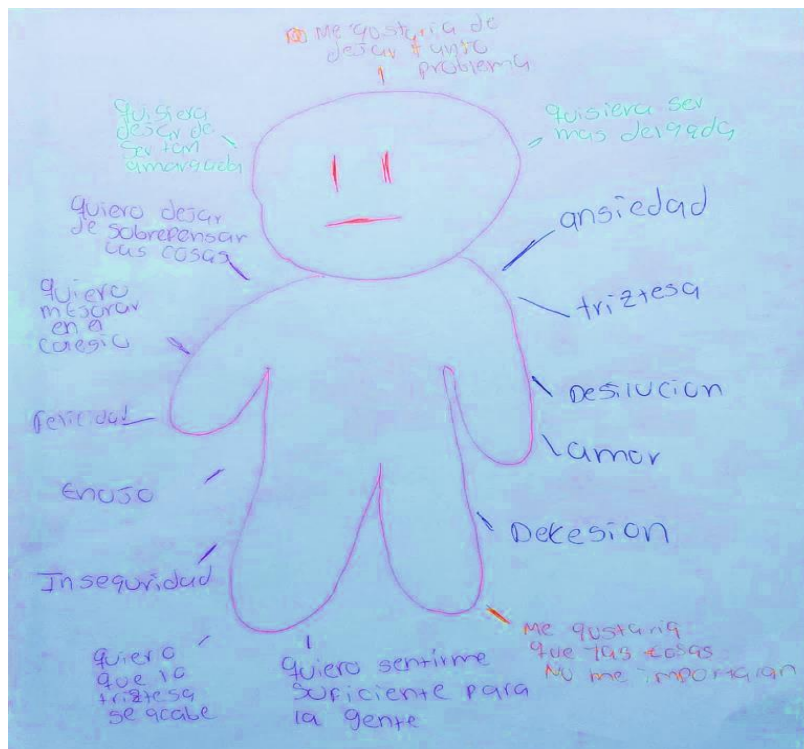 Me gustaria de
dejar tanto
problema
quisiera
dejar de
ser tan
amargada
quisiera ser
mas delgada
quiero dejar
de sobrepensar
las cosas
ansiedad
quiero
mejorar
en el
colegio
triztesa
Desilucion
felicidad
lamor
Enojo
Decesion
Inseguridad
Me gustaria
que las cosas
No me importaran
quiero
que la
triztesa
se acabe
quiero sentirme
suficiente para
la gente